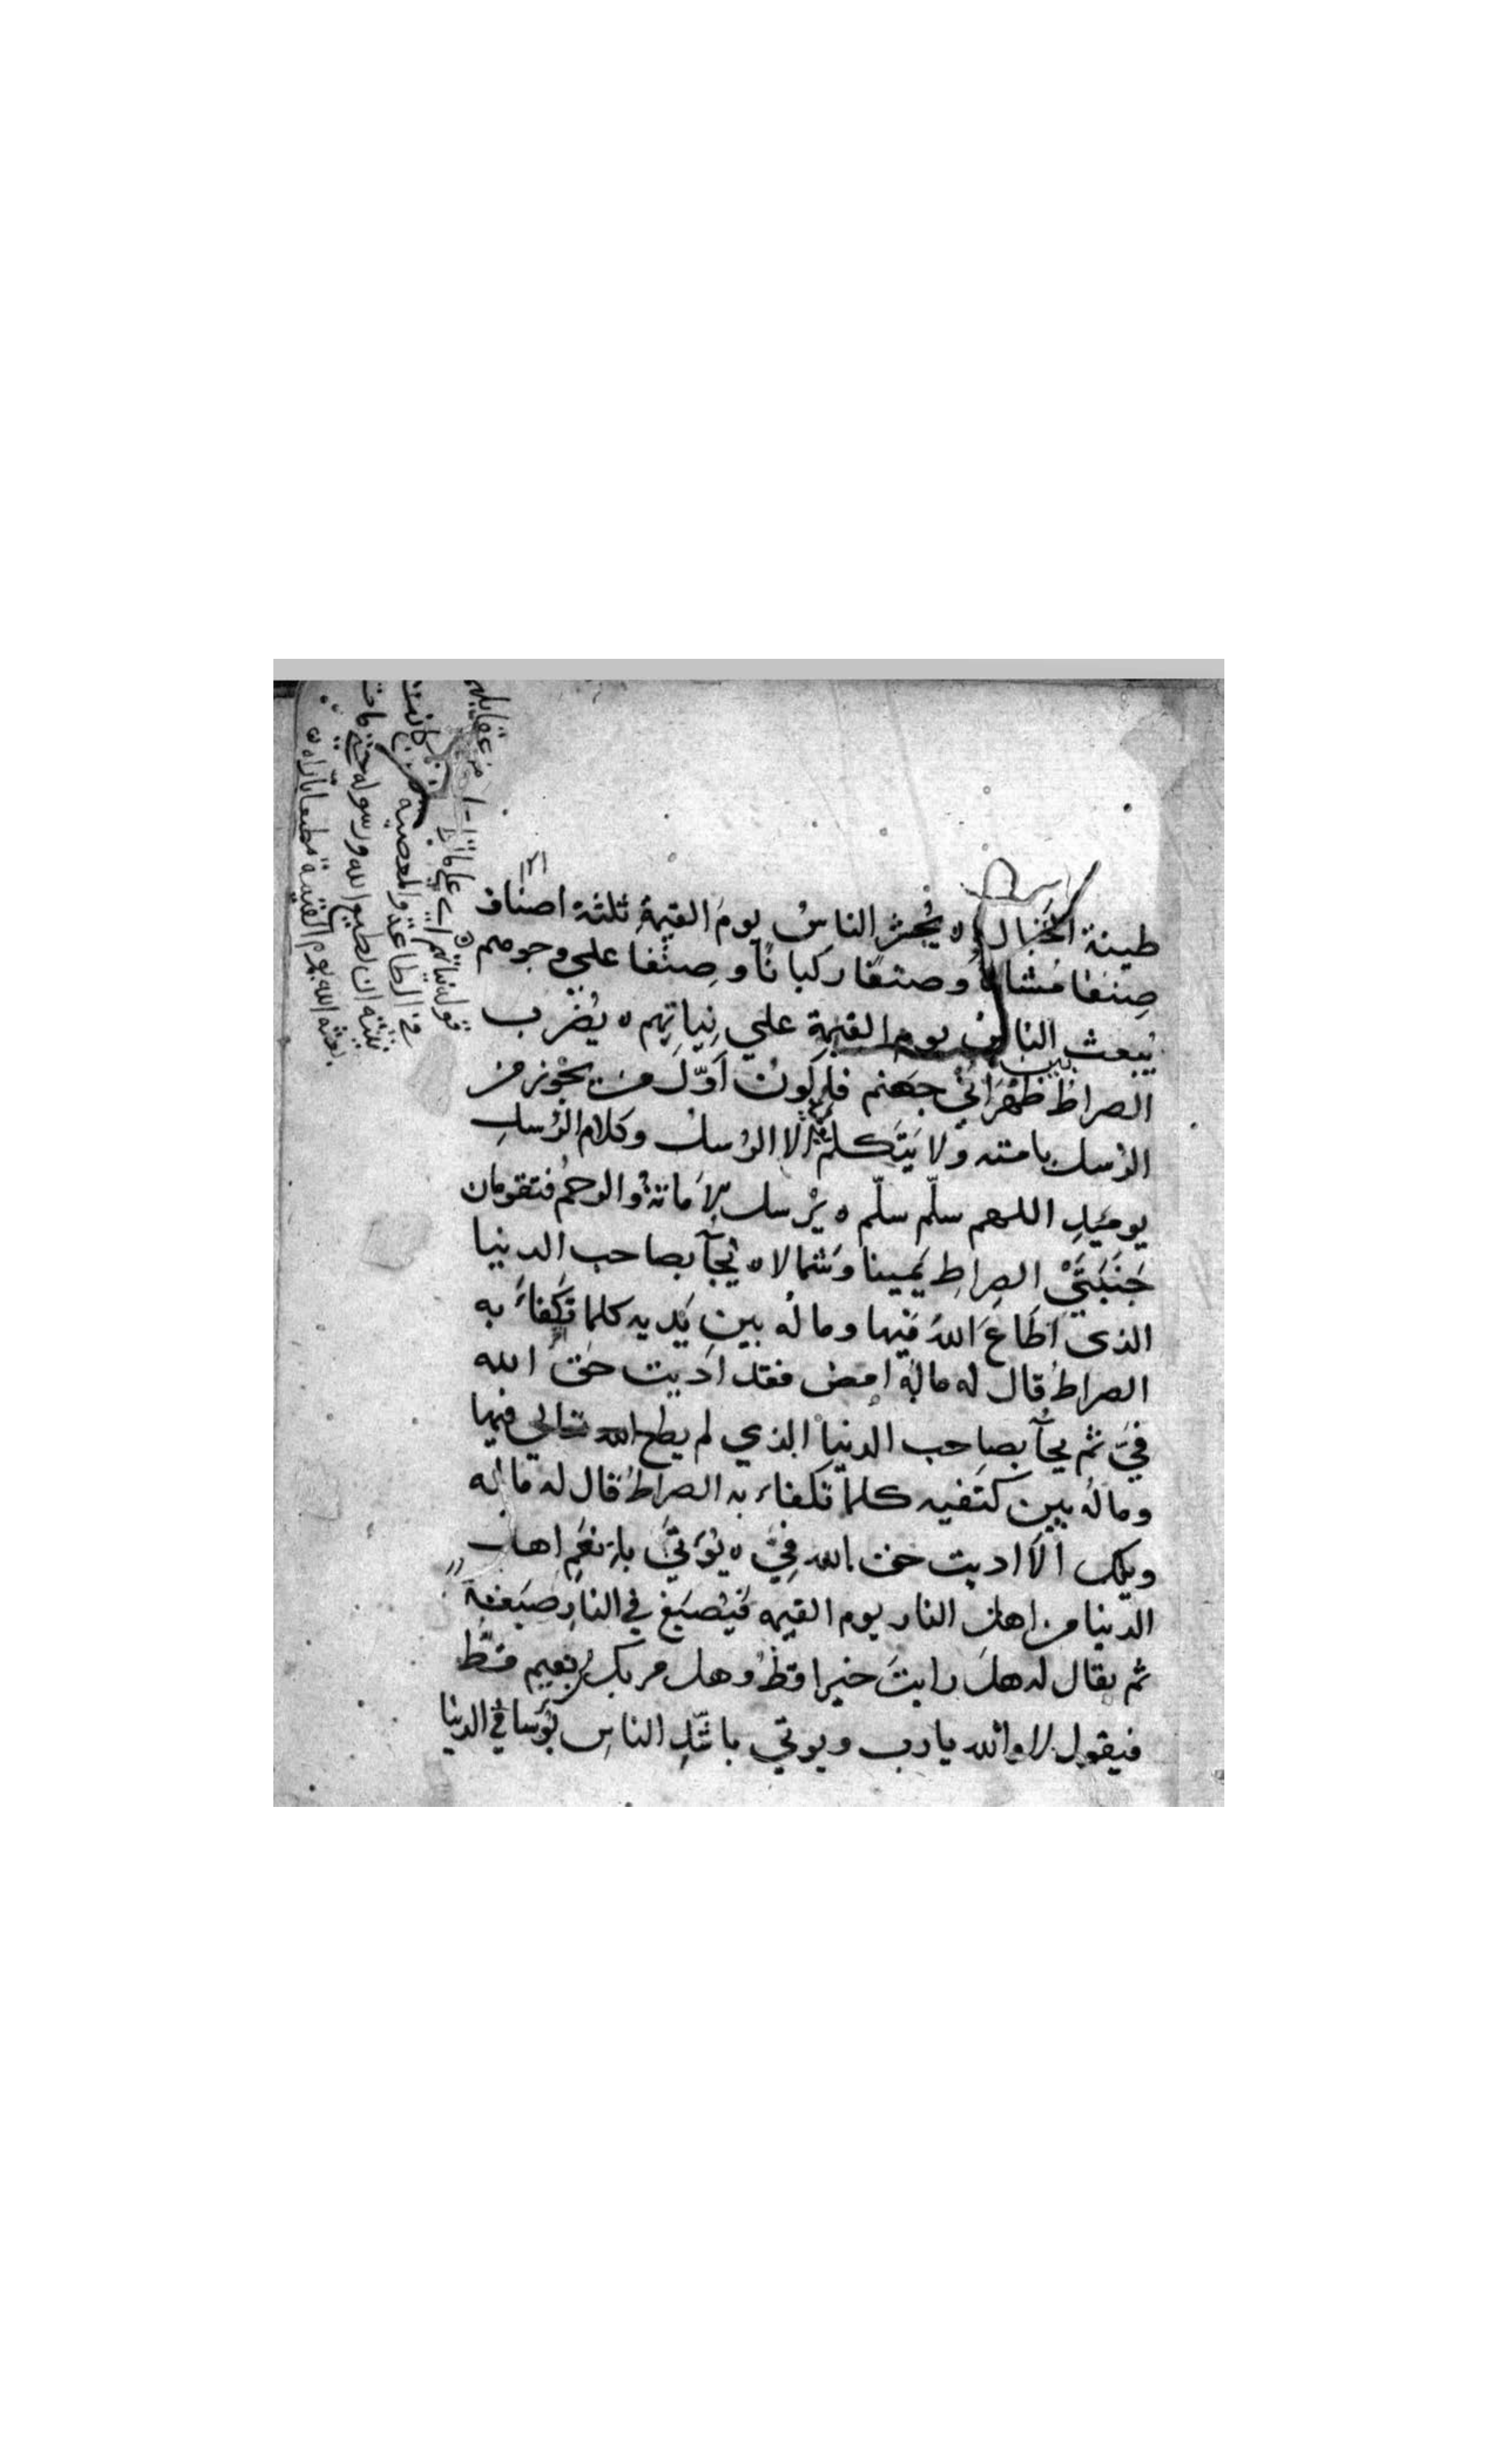 ١٢١
طينة الخبال ه يُحشر الناسُ يومَ القيمةِ ثلثة اصناف
صِنفا مُشاة وصنفًا ركبانًا وصِنْفا علي وجوههم
يُبعث الناس يوم القيمة علي نِياتِهم ه يُضْرب
الصراط بين ظَهْرَانَيْ جهنم فاكون اوّلَ من يجُوز من
الرُسل بامته ولا يَتَكلم الا الرُسلُ وكلام الرُسلِ
يوميذٍ اللهم سلّم سلّم ه يُرْسل الأمانةُ والرحمُ فتقومان
جَنَبَتَيْ الصِراطِ يمينا وشمالا ه يُجآ بصاحب الدنيا
الذى اَطَاعَ اللهَ فيها ومالُه بين يَديه كلما تَكَفاءَ به
الصراطُ قال له مالُهُ امض فقد اديت حَق الله
فيَّ ثم يجآ بصاحب الدنيا الذي لم يطع الله تعالي فيها
ومالُه بين كتفيه كلما تكفاء به الصراطُ قال له مالُه
ويلك الَا اديت حق الله فِيَّ ه يُؤتَيَ بانعَمِ اهل
الدنيا من اهل النار يوم القيمه فيُصبَغ في النارِ صَبغة
ثم يقال له هل رايتَ خيرا قطُ وهل مر بك نعيم قطُّ
فيقول لا والله يارب ويوتي باشدِّ الناسِ بُؤسا في الدنيا
قوله نياتهم اي علي
في الطاعة والمعصية
نيته ان يطيع الله ورسوله
بعثه الله يوم القيمة مطيعا